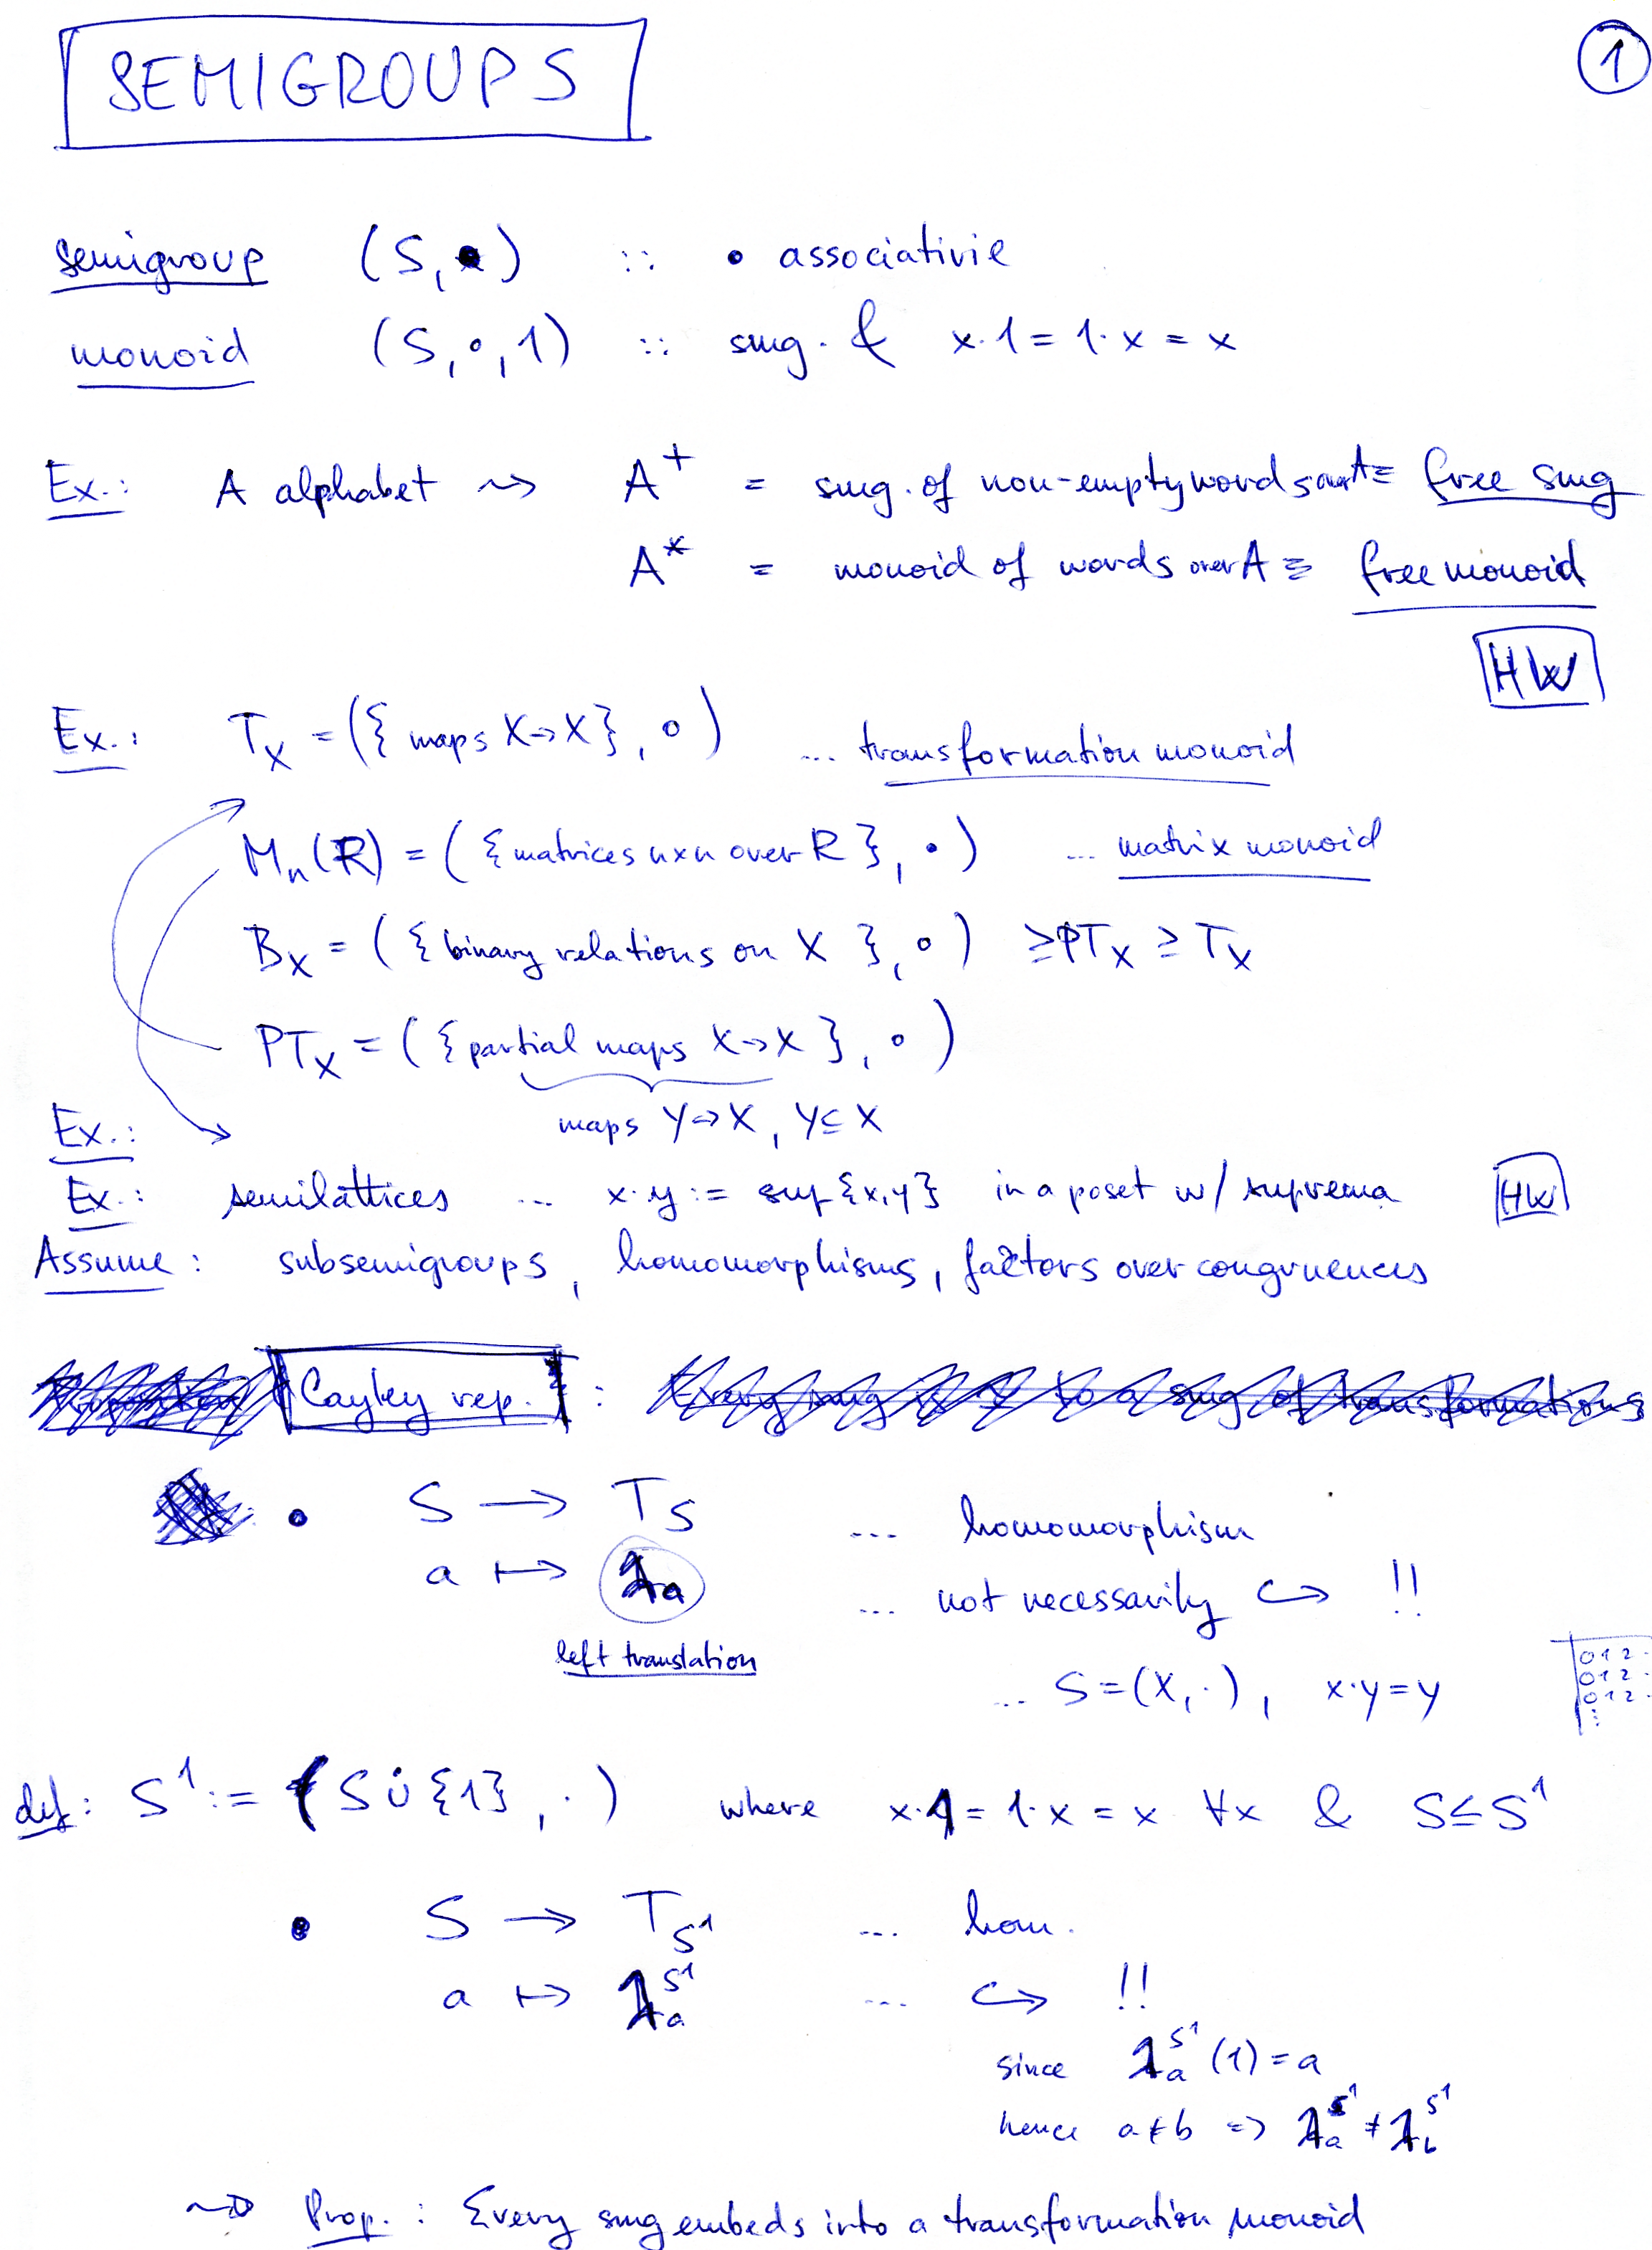 SEMIGROUPS
1
semigroup (S, •) :: • associativie
monoid (S, ∘, 1) :: smg. & x·1 = 1·x = x
Ex.: A alphabet ⇝ A⁺ = smg. of non-empty words over A ≡ free smg
A* = monoid of words over A ≡ free monoid
HW
Ex.: T_X = ({ maps X→X }, ∘) ... transformation monoid
M_n(R) = ({ matrices n×n over R }, •) ... matrix monoid
B_X = ({ binary relations on X }, ∘) ≥ PT_X ≥ T_X
PT_X = ({ partial maps X→X }, ∘)
maps Y→X, Y⊆X
Ex.:
Ex.: semilattices ... x·y := sup{x,y} in a poset w/ suprema HW
Assume: subsemigroups, homomorphisms, factors over congruences
Cayley rep. : Every smg is to a smg of transformations
• S → T_S ... homomorphism
a ↦ λ_a ... not necessarily ↪ !!
left translation
... S = (X, ·), x·y = y
0 1 2 ·
0 1 2 ·
0 1 2 ·
⋮
def: S¹ := (S ∪̇ {1}, ·) where x·1 = 1·x = x ∀x & S ≤ S¹
• S → T_{S¹} ... hom.
a ↦ λ_a^{S¹} ... ↪ !!
since λ_a^{S¹}(1) = a
hence a ≠ b ⇒ λ_a^{S¹} ≠ λ_b^{S¹}
⇝ Prop.: Every smg embeds into a transformation monoid